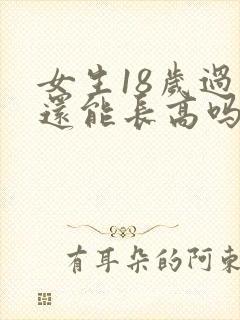 女生18歲過
還能長高嗎
有耳朵的阿東